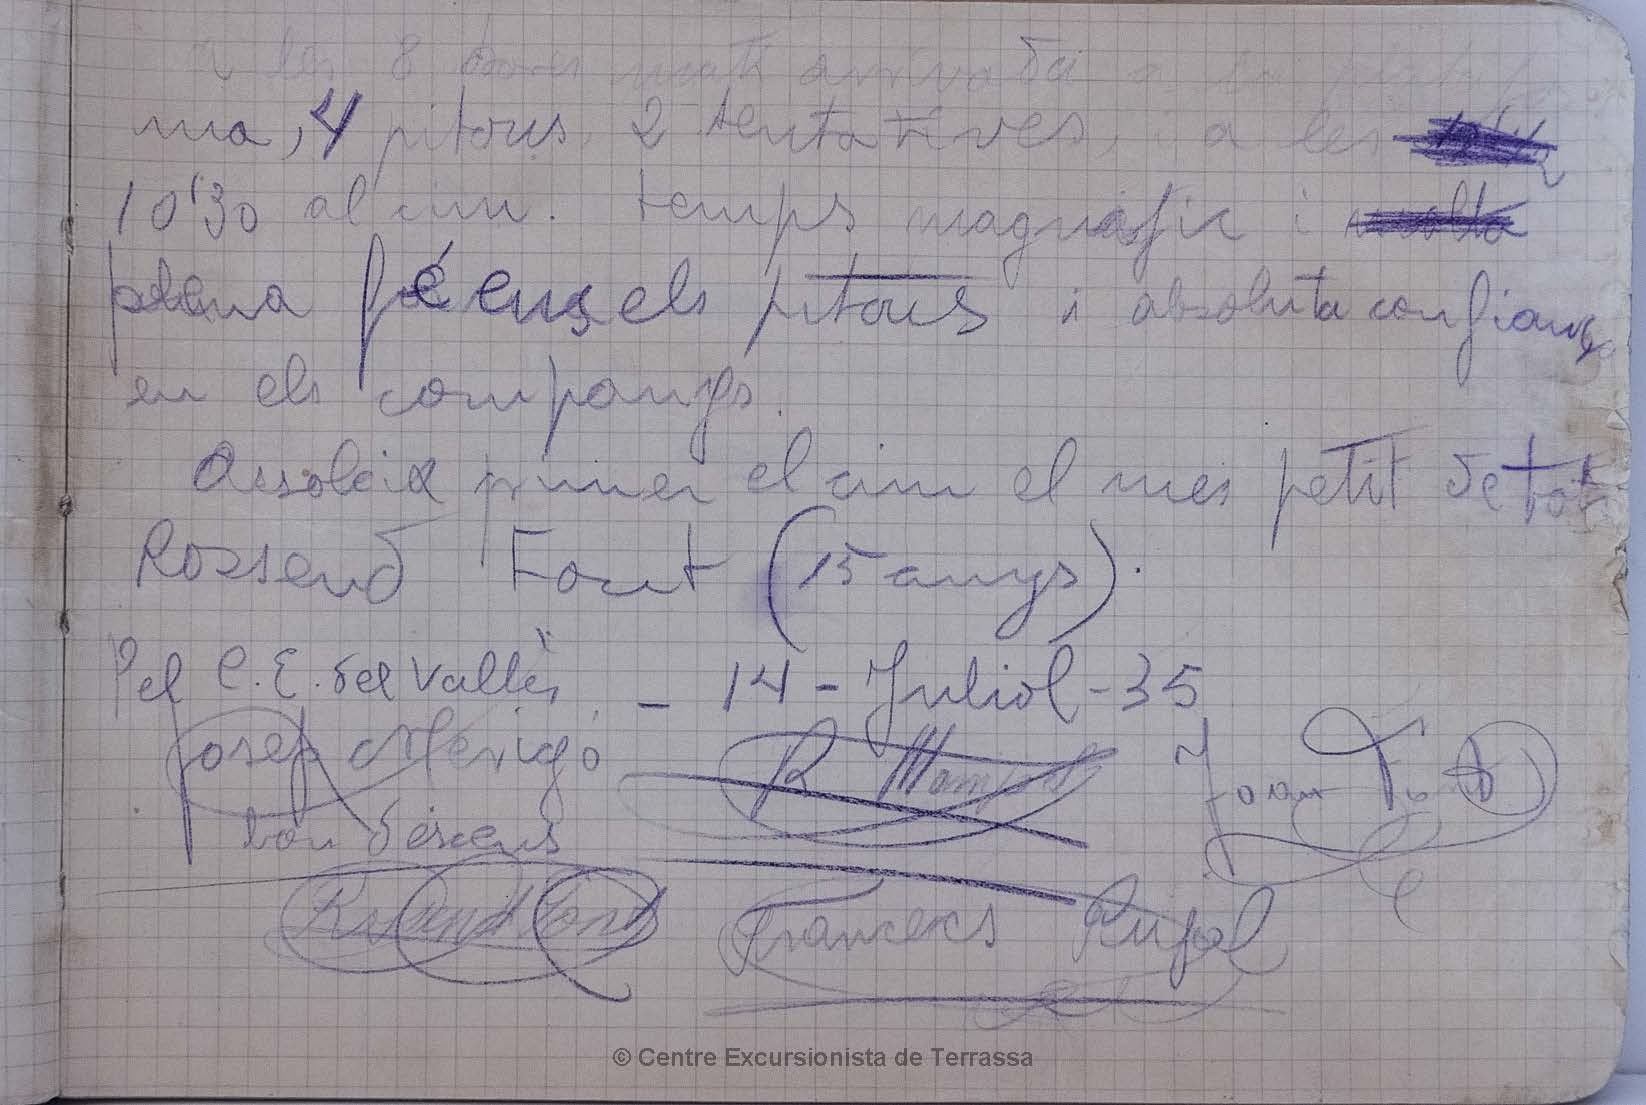 a les 8 hores matí arrivada a la
ma, 4 pitons, 2 tentatives, i a les
10'30 al cim. temps magnífic i molta
plena fé en els pitons i absoluta confiança
en els companys.
Assoleix primer el cim el mes petit de tots
Rossend Font (15 anys).
Pel C.E. del Vallès - 14 - Juliol - 35
Josep Merigó R. Joan
bon descens
Rossend Font Francesc Pujol
© Centre Excursionista de Terrassa